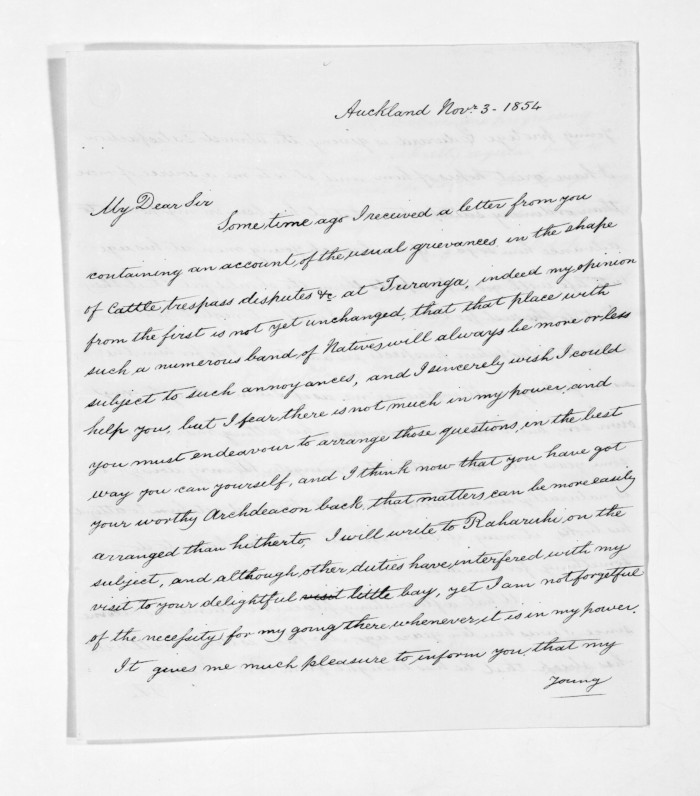 Auckland Novr. 3 - 1854
My Dear Sir
Some time ago I received a letter from you
containing an account, of the usual grievances in the shape
of Cattle, trespass disputes &c at Turanga, indeed my opinion
from the first is not yet unchanged, that that place with
such a numerous band, of Natives, will always be more or less
subject to such annoyances, and I sincerely wish I could
help you, but I fear, there is not much in my power, and
you must endeavour to arrange those questions, in the best
way you can yourself, and I think now that you have got
your worthy Archdeacon back, that matters, can be more easily
arranged than hitherto, I will write to Raharuhi, on the
subject, and although, other, duties have, interfered, with my
visit to your delightful visit little bay, yet I am not forgetful
of the necessity, for my going there, whenever, it is in my power.
It gives me much pleasure to inform you that my
young